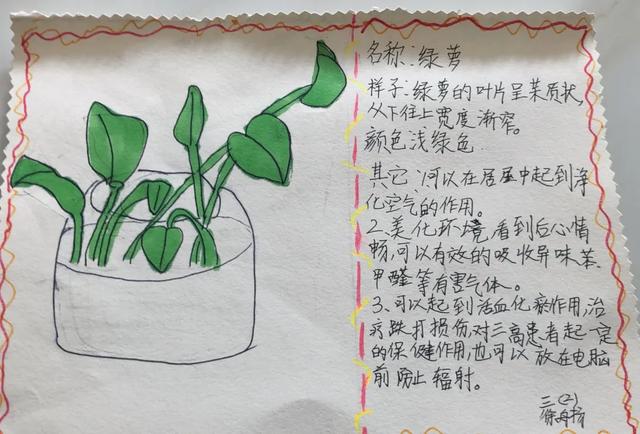 名称:绿萝
样子:绿萝的叶片呈茉质状,
从下往上宽度渐窄。
颜色浅绿色.
其它:可以在居屋中起到净
化空气的作用。
2.美化环境,看到后心情
畅,可以有效的吸收异味苯.
甲醛等有害气体。
3.可以起到活血化瘀作用,治
疗跌打损伤,对三高患者起一定
的保健作用,也可以放在电脑
前防止辐射。
三(2)